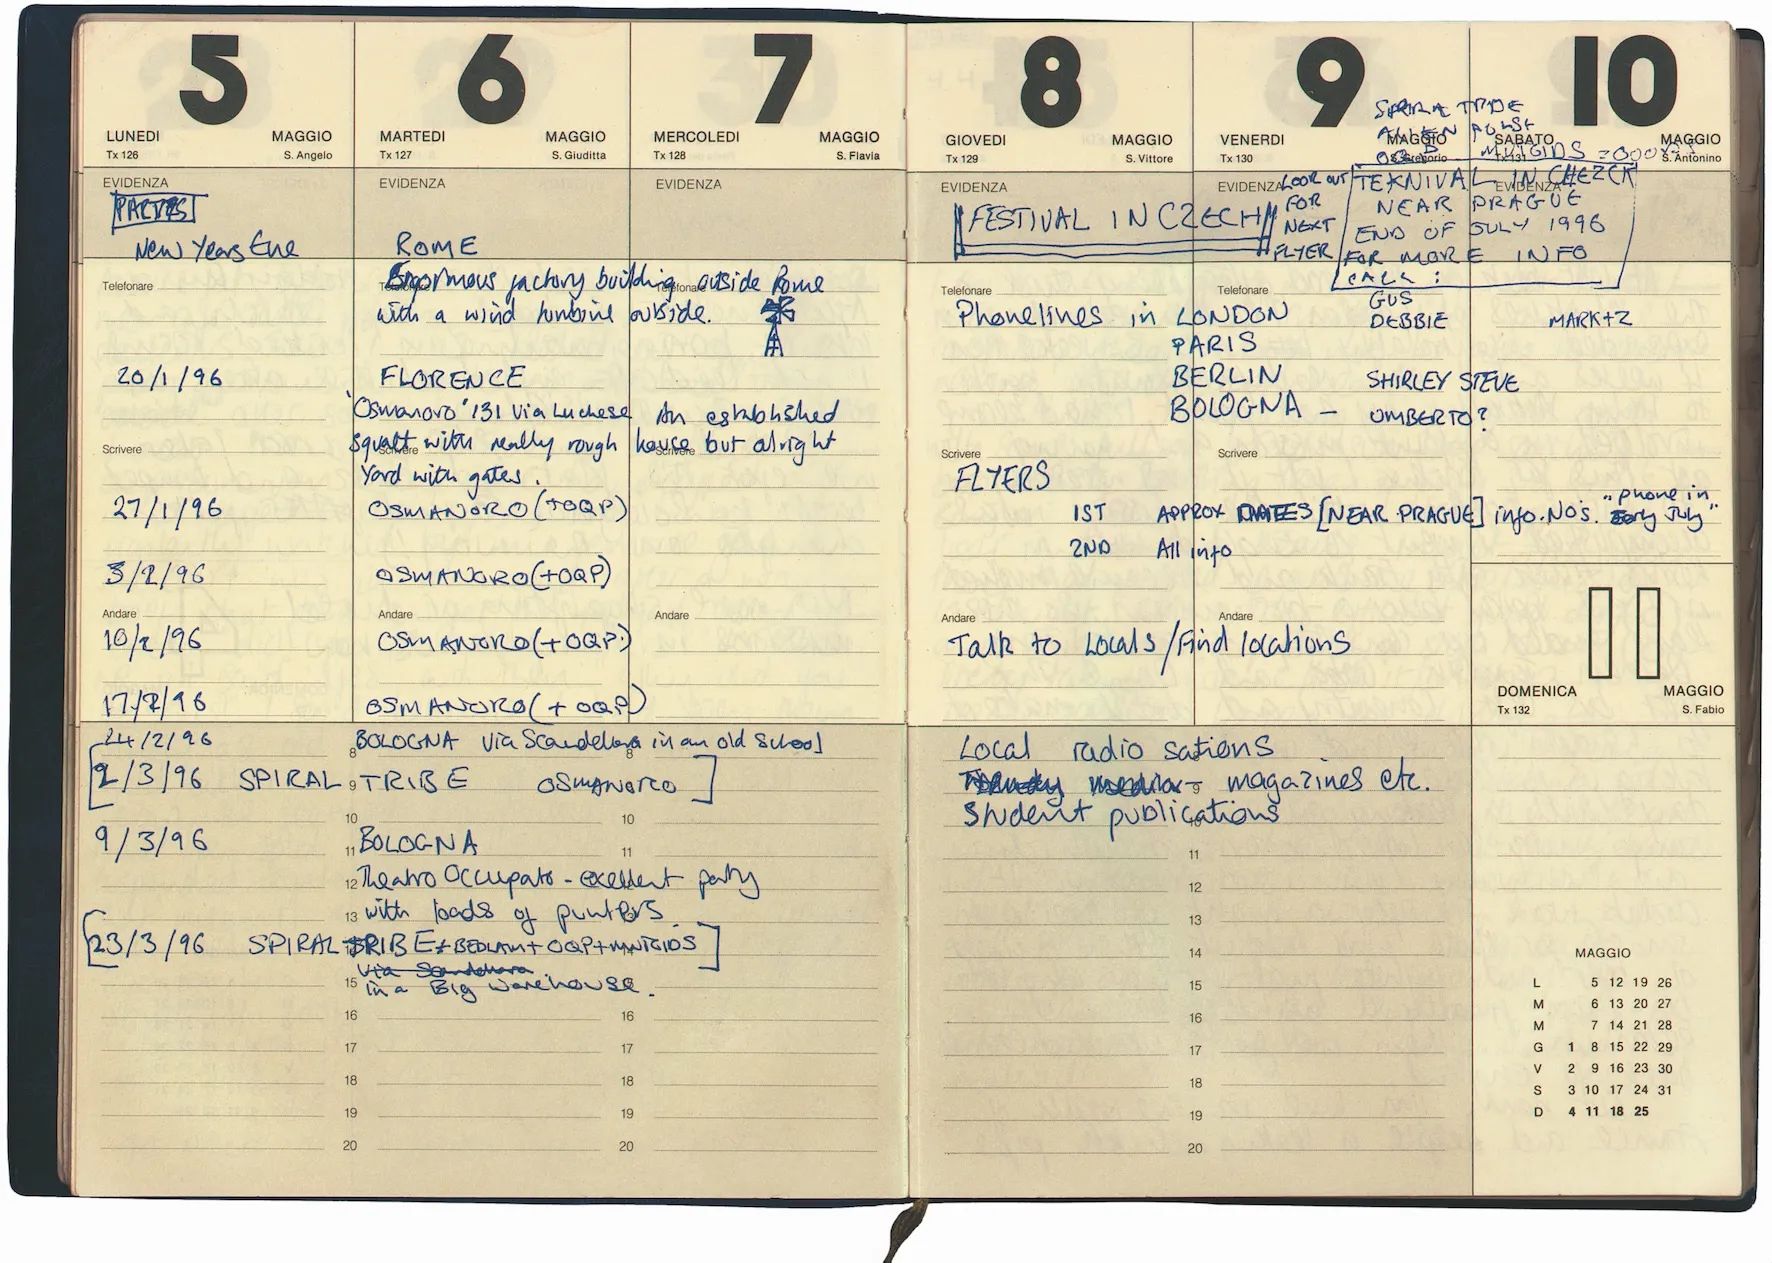 5
LUNEDI MAGGIO
Tx 126 S. Angelo
EVIDENZA
PARTYS
New Years Eve
Telefonare
20/1/96
Scrivere
27/1/96
3/2/96
Andare
10/2/96
17/2/96
6
MARTEDI MAGGIO
Tx 127 S. Giuditta
EVIDENZA
ROME
7
MERCOLEDI MAGGIO
Tx 128 S. Flavia
EVIDENZA
Enormous factory building outside Rome
Telefonare Telefonare
with a wind turbine outside.
FLORENCE
'Osmanoro' 131 Via Luchese An established
squatt with really rough house but alright
Scrivere Scrivere
Yard with gates.
OSMANORO (+OQP)
OSMANORO (+OQP)
Andare Andare
OSMANORO (+OQP.)
OSMANORO (+ OQP)
24/2/96 BOLOGNA via Scandellara in an old School
8 8
[2/3/96 SPIRAL TRIBE OSMANORO]
9
10 10
9/3/96 BOLOGNA
11 11
12 Theatro Occupato - excellent party
13 with loads of punters.
[23/3/96 SPIRAL TRIBE + BEDLAM + OQP + MUTOIDS]
14
via Scandellara
15 in a Big warehouse.
16 16
17 17
18 18
19 19
20 20
8
GIOVEDI MAGGIO
Tx 129 S. Vittore
EVIDENZA
FESTIVAL IN CZECH
9
VENERDI MAGGIO
Tx 130 S. Gregorio
EVIDENZA
LOOK OUT
FOR
NEXT
FLYER
10
SABATO MAGGIO
Tx 131 S. Antonino
EVIDENZA
SPIRAL TRIBE
OQP MUTOIDS
TEKNIVAL IN CHEZCK
NEAR PRAGUE
END OF JULY 1996
FOR MORE INFO
CALL:
Telefonare Telefonare
Phonelines in LONDON GUS
DEBBIE MARK+Z
PARIS
BERLIN SHIRLEY STEVE
BOLOGNA - UMBERTO?
Scrivere Scrivere
FLYERS
1ST APPROX DATES [NEAR PRAGUE] info. No's. "phone in
Early July"
2ND All info
Andare Andare
Talk to Locals/Find locations
Local radio sations
magazines etc.
9
Student publications
10
11
12
13
14
15
16
17
18
19
20
11
DOMENICA MAGGIO
Tx 132 S. Fabio
MAGGIO
L 5 12 19 26
M 6 13 20 27
M 7 14 21 28
G 1 8 15 22 29
V 2 9 16 23 30
S 3 10 17 24 31
D 4 11 18 25